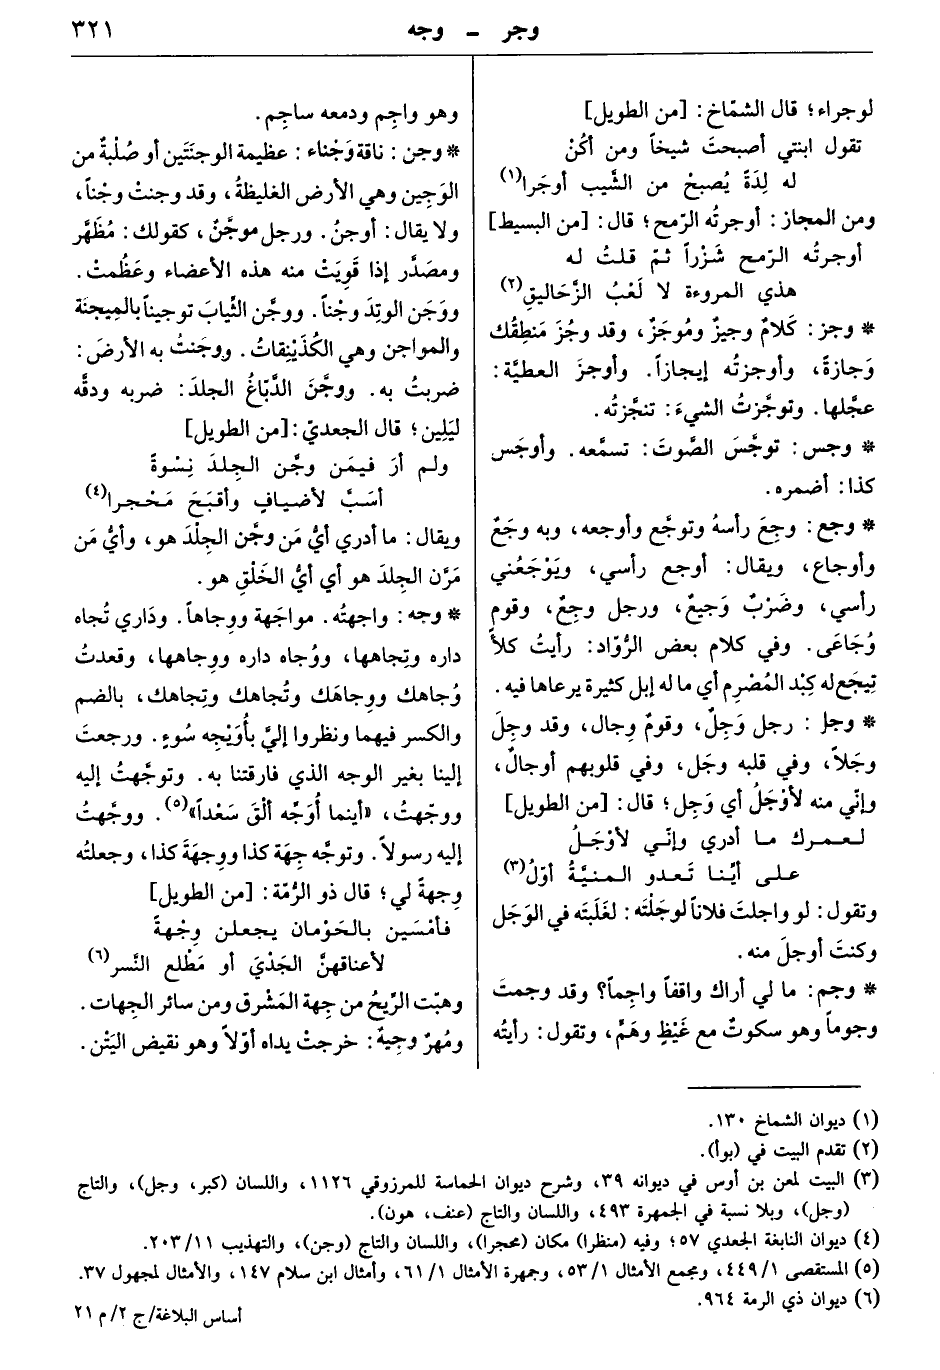 وجر - وجه
٣٢١
لوجراء؛ قال الشمّاخ: [من الطويل]
تقول ابنتي أصبحتَ شيخاً ومن أكُنْ
له لِدَةً يُصبحْ من الشَّيب أوجَرا(١)
ومن المجاز: أوجرتُه الرّمح؛ قال: [من البسيط]
أوجرتُه الرّمح شَزْراً ثمّ قلتُ له
هذي المروءة لا لَعْبُ الزَّحاليقِ(٢)
* وجز: كَلامٌ وجيزٌ ومُوجَزٌ، وقد وجُزَ مَنطِقُك
وَجازةً، وأوجزتُه إيجازاً. وأوجزَ العطيَّة:
عجَّلها. وتوجَّزتُ الشيءَ: تنجَّزتُه.
* وجس: توجَّسَ الصَّوتَ: تسمَّعه. وأوجَس
كذا: أضمره.
* وجع: وجِعَ رأسهُ وتوجَّع وأوجعه، وبه وجَعٌ
وأوجاع، ويقال: أوجع رأسي، ويَوْجَعُني
رأسي، وضَرْبٌ وَجيعٌ، ورجل وجِعٌ، وقوم
وُجَاعَى. وفي كلام بعض الرُّوّاد: رأيتُ كلأً
تِيجَع له كِبْد المُصْرِم أي ما له إبل كثيرة يرعاها فيه.
* وجل: رجل وَجِلٌ، وقومٌ وِجال، وقد وجِلَ
وجَلاً، وفي قلبه وجَل، وفي قلوبهم أوجالٌ،
وإنّي منه لأَوْجَلُ أي وَجِل؛ قال: [من الطويل]
لعمرك ما أدري وإنّي لأوْجَلُ
على أيِّنا تَعدو المنيَّةُ أوّلُ(٣)
وتقول: لو واجلتَ فلاناً لوجَلْتَه: لغَلَبتَه في الوَجَل
وكنتَ أوجلَ منه.
* وجم: ما لي أراك واقفاً واجِماً؟ وقد وجمتَ
وجوماً وهو سكوتٌ مع غَيْظٍ وهَمٍّ، وتقول: رأيتُه
وهو واجِم ودمعه ساجِم.
* وجن: ناقة وَجْناء: عظيمة الوجنَتَين أو صُلْبةٌ من
الوَجين وهي الأرض الغليظةُ، وقد وجنتْ وجْناً،
ولا يقال: أوجنُ. ورجل موجَّنٌ، كقولك: مُظَهَّر
ومصَدَّر إذا قَوِيَتْ منه هذه الأعضاء وعَظُمتْ.
ووَجَن الوتِدَ وجْناً. ووجَّن الثِّيابَ توجيناً بالمِيجنَة
والمواجن وهي الكُذَيْنِقاتُ. ووجَنتُ به الأرضَ:
ضربتُ به. ووجَّنَ الدَّبّاغُ الجلدَ: ضربه ودقَّه
ليَلِين؛ قال الجعديّ: [من الطويل]
ولم أرَ فيمَن وجَّن الجِلدَ نِسْوةً
أسَبَّ لأضيافٍ وأقبَحَ مَحْجرا(٤)
ويقال: ما أدري أيُّ مَن وجَّن الجِلْدَ هو، وأيُّ مَن
مَرَّن الجِلدَ هو أي أيُّ الخَلْقِ هو.
* وجه: واجهتُه. مواجَهة ووِجاهاً. ودَاري تُجاه
داره وتِجاهها، ووُجاه داره ووِجاهها، وقعدتُ
وُجاهك ووِجاهَك وتُجاهك وتِجاهك، بالضم
والكسر فيهما ونظروا إليَّ بأُوَيْجِه سُوءٍ. ورجعتَ
إلينا بغير الوجه الذي فارقتنا به. وتوجَّهتُ إليه
ووجّهتُ، «أينما أُوَجِّه ألْقَ سَعْداً»(٥). ووجَّهتُ
إليه رسولاً. وتوجَّه جِهَة كذا ووِجهَةَ كذا، وجعلتُه
وِجهةً لي؛ قال ذو الرُّمّة: [من الطويل]
فأمْسَين بالحَوْمان يجعلن وِجْهةً
لأعناقهنَّ الجَدْيَ أو مَطْلع النَّسر(٦)
وهبّت الرّيحُ من جِهة المَشْرق ومن سائر الجهات.
ومُهرٌ وجيهٌ: خرجتْ يداه أوّلاً وهو نقيض اليَتْن.
(١) ديوان الشماخ ١٣٠.
(٢) تقدم البيت في (بوأ).
(٣) البيت لمعن بن أوس في ديوانه ٣٩، وشرح ديوان الحماسة للمرزوقي ١١٢٦، واللسان (كبر، وجل)، والتاج
(وجل)، وبلا نسبة في الجمهرة ٤٩٣، واللسان والتاج (عنف، هون).
(٤) ديوان النابغة الجعدي ٥٧؛ وفيه (منظرا) مكان (محجرا)، واللسان والتاج (وجن)، والتهذيب ٢٠٣/١١.
(٥) المستقصى ٤٤٩/١، ومجمع الأمثال ٥٣/١، وجمهرة الأمثال ٦١/١، وأمثال ابن سلام ١٤٧، والأمثال لمجهول ٣٧.
(٦) ديوان ذي الرمة ٩٦٤.
أساس البلاغة/ج ٢/م ٢١